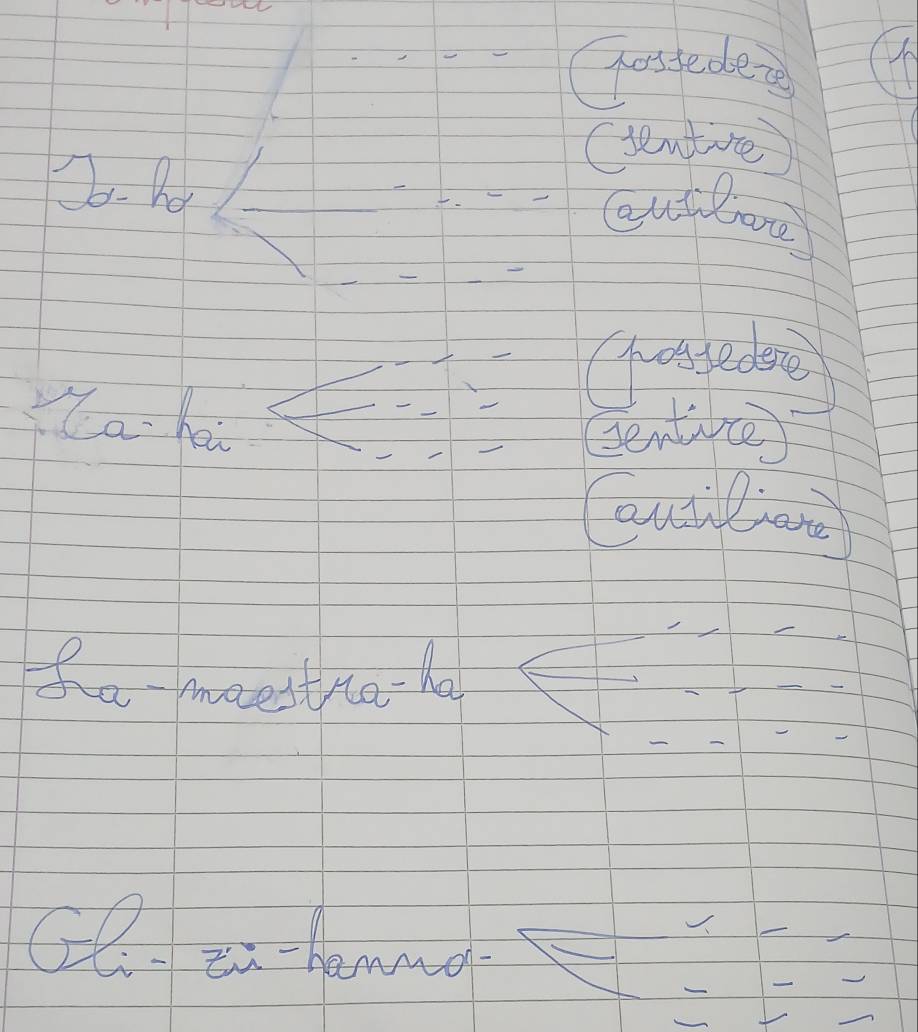 (possedere)
(sentire)
Io-ho
(ausiliare)
(possedere)
Tu-hai
(sentire)
(ausiliare)
La-maestra-ha
Gli-zii-hanno-